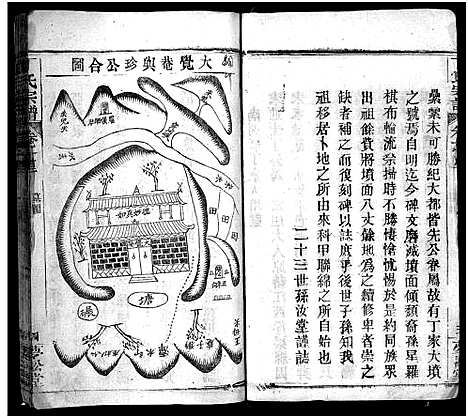 纍纍未可勝紀大都皆先公眷屬故有丁家大墳
之號焉自明迄今碑文磨滅墳面傾頹裔孫星羅
棋布輪流祭掃時不勝悽愴忧惕於是約同族眾
出祖餘費將墳面八丈餘地為之續修卑者崇之
缺者補之而復刻碑以誌庶乎後世子孫知我
祖移居卜地之所由來科甲聯綿之所自始也
二十三世孫汝堂謹誌
大覺巷與珍公合圖
塘
田
田
氏宗譜
墓圖